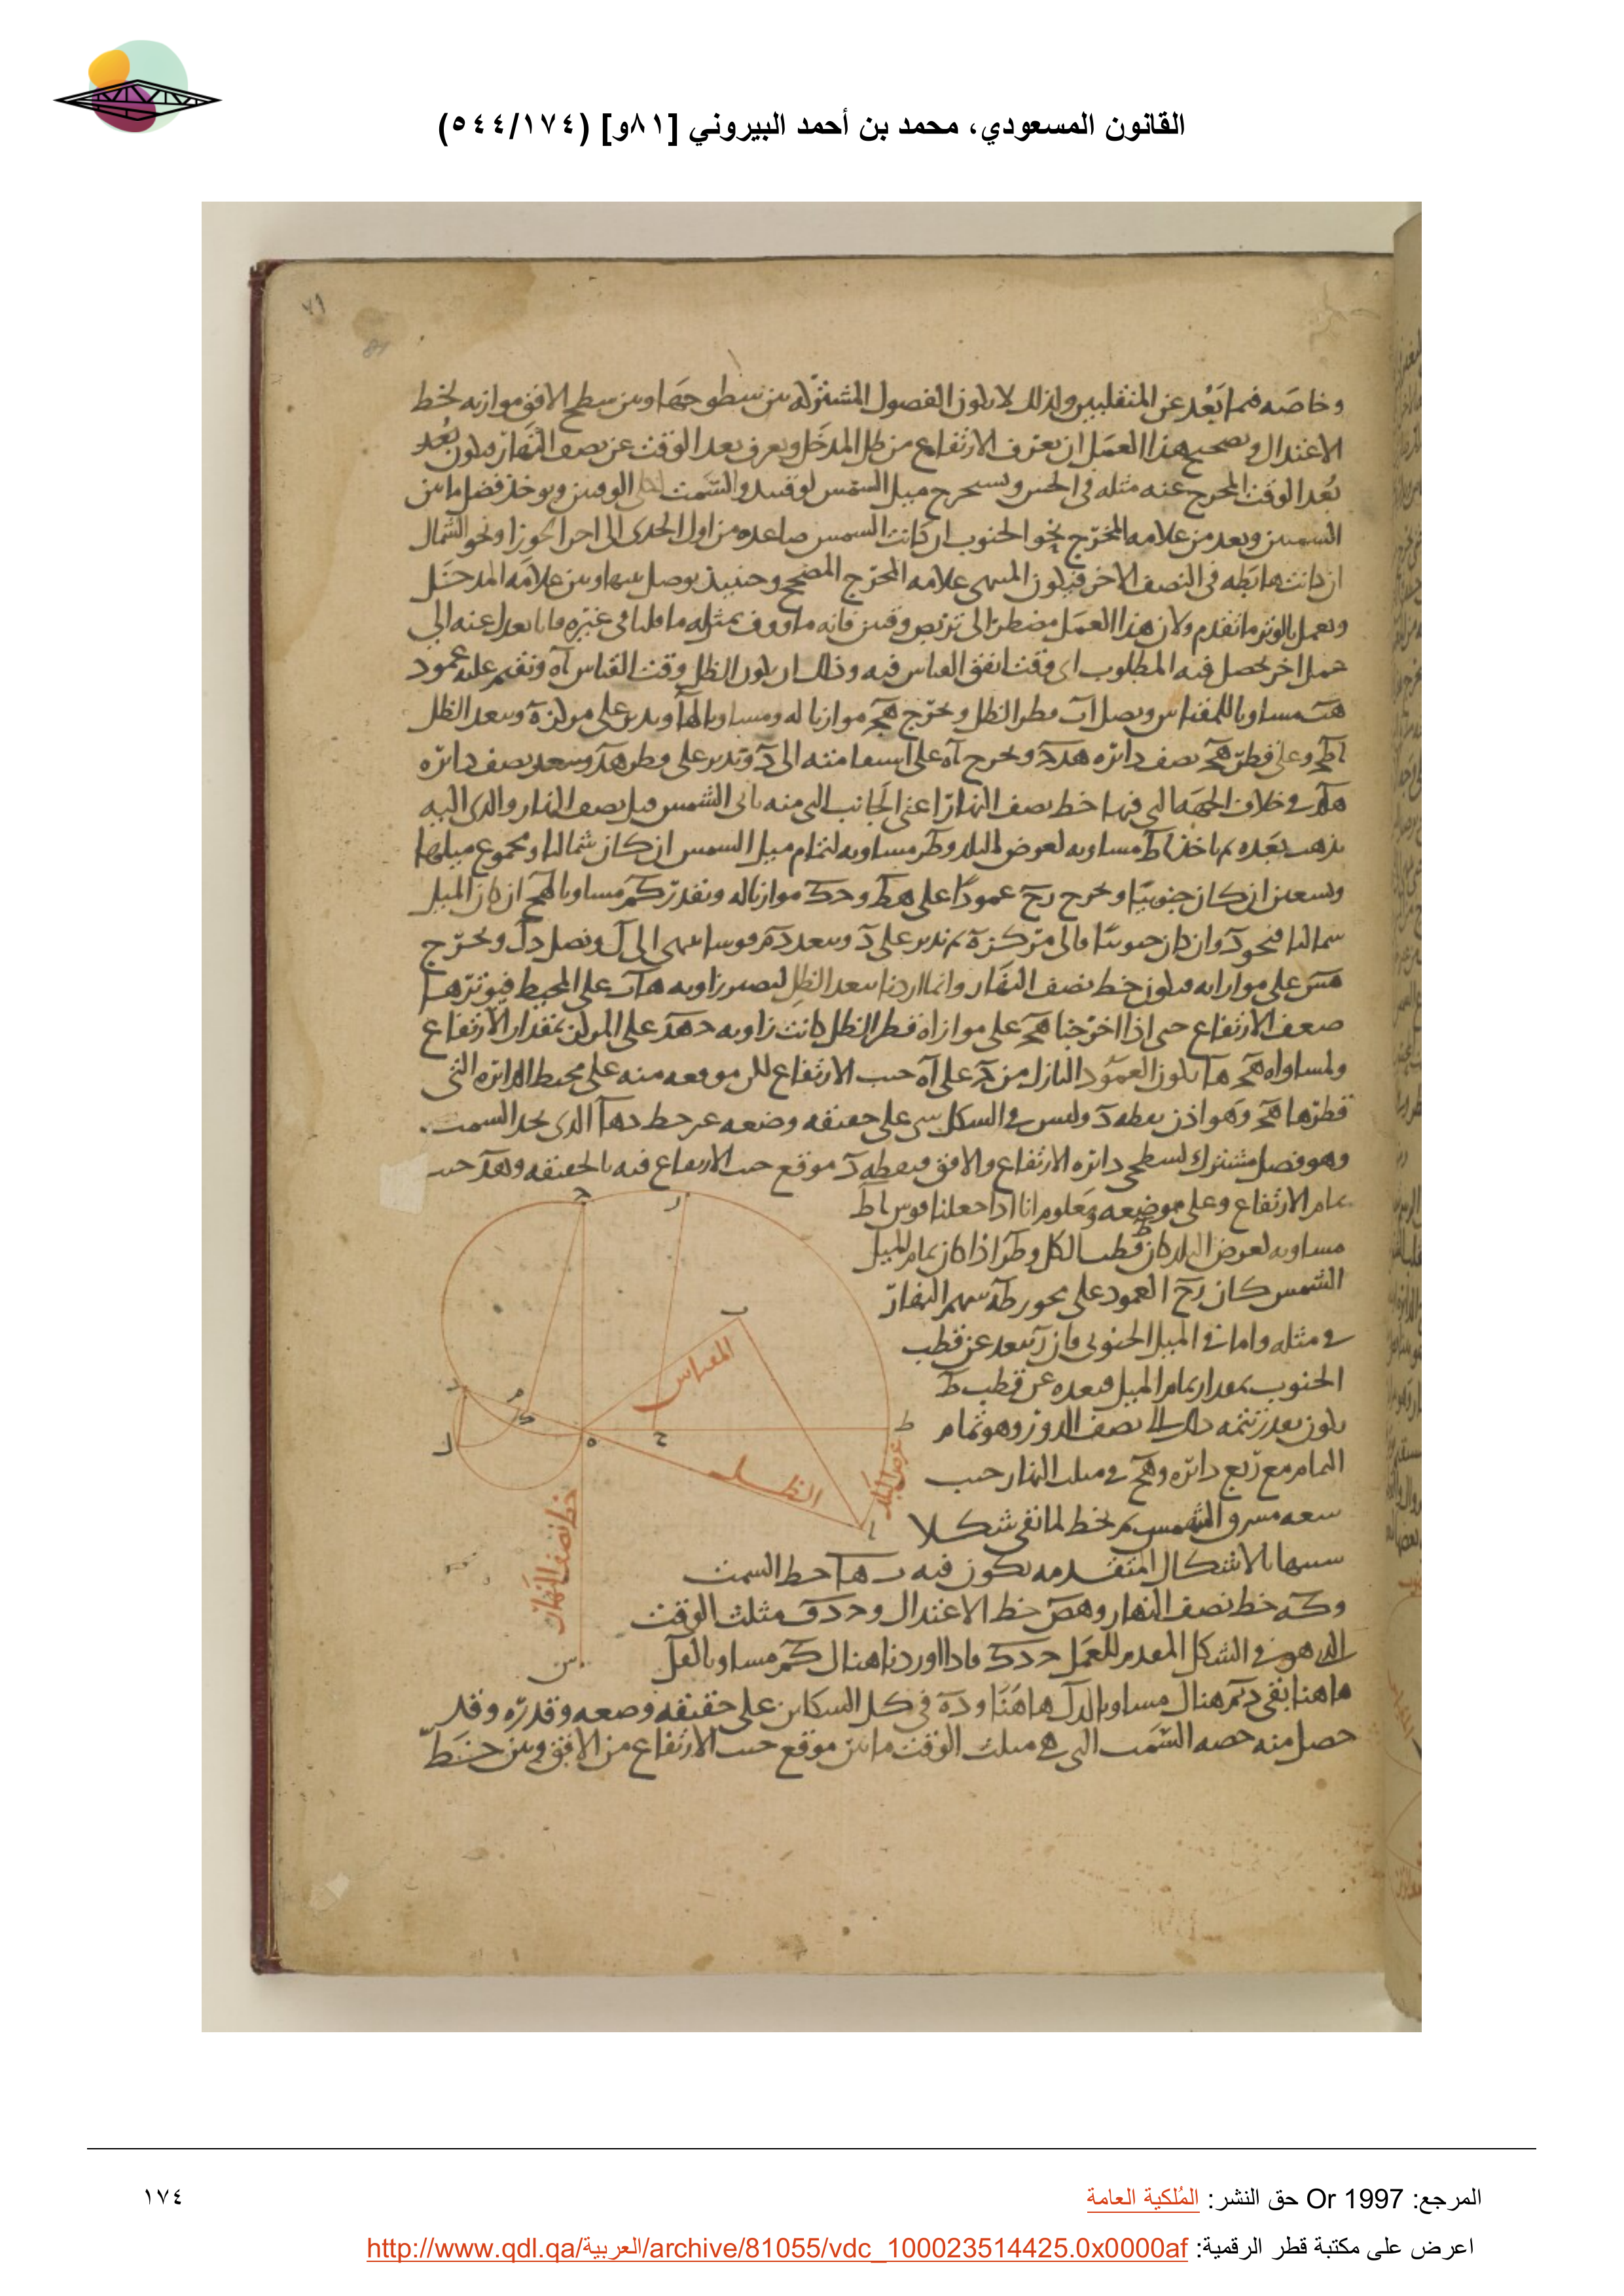 القانون المسعودي، محمد بن أحمد البيروني [٨١و] (٥٤٤/١٧٤)
٧٩
81
وخاصه فيما بَعُد عن المنقلبين ولذلك لا يكون الفصول المشتركه بين سطوحها وبين سطح الافق موازيه لخط
الاعتدال وتصحيح هذا العمل ان يعرف الارتفاع من ظل المدخل ويعرف بعد الوقت عن نصف النهار فيكون بُعد
بُعد الوقت المخرج عنه مثله في الجنس ونستخرج ميل الشمس لوقتيه والسمت الوقتين ويوخذ فضل ما بين
السمتين ويعد من علامه المخرج نحو الجنوب ان كانت الشمس صاعده من اول الجدى الى اخر الجوزا ونحو الشمال
ان كانت هابطه في النصف الاخر فيكون المنتهى علامه المخرج المصحح وحينيذ يوصل بينها وبين علامه المدخل
ويعمل بالوتر ما تقدم ولان هذا العمل مضطر الى تربص وقتين فانه ما ووف بمثله ما قلنا في غيره فانا نعدل عنه الى
عمل اخر يحصل فيه المطلوب اى وقت اتفق القياس فيه وذلك ان يكون الظل وقت القياس آه ونقيم عليه عمود
هب مساويا للمقياس ونصل آب قطر الظل ونخرج هج موازيا له ومساويا لها وندير على مركز ه وببعد الظل
اطج وعلى قطر هج نصف دائره هدج ونخرج آه على استقامته الى د وندير على قطر هد وببعد نصف دائره
هكد في خلاف الجهه التي فيها خط نصف النهار اعنى الجانب التي منه تاتى الشمس قبل نصف النهار والذى اليه
تذهب بعده ثم ناخذ اط مساويه لعرض البلد وطر مساويه لتمام ميل الشمس ان كان شماليا ومجموع ميلها
وتسعين ان كان جنوبيا ونخرج رح عمودا على هط وحك موازيا له ونفدر كم مساويا لهح ان كان الميل
شماليا فنحو د وان كان جنوبيا فالى مركز ه ثم ندير على د وببعد دم قوسا ينتهى الى ل ونصل دل ونخرج
هس على موازاته فيكون خط نصف النهار وانما ادرنا ببعد الظل لتصير زاويه هاب على المحيط فيوترها
ضعف الارتفاع حتى اذا اخرجنا هج على موازاة قطر الظل كانت زاويه جهد على المركز بمقدار الارتفاع
ولمساواه هج ها يكون العمود النازل من ج على آه جيب الارتفاع لكن موقعه منه على محيط الدائره التي
قطرها هج وهو اذن نقطه د وليس في الشكل شى على حقيقه وضعه غير خط دها الذى يحد السمت
وهو فصل مشترك لسطحى دائره الارتفاع والافق فنقطه د موقع جيب الارتفاع فيه بالحقيقه وهد جيب
تمام الارتفاع وعلى موضعه ومعلوم انا اذا جعلنا قوس اط
مساويه لعرض البلد كان ط قطب الكل وطر اذا كان تمام لميل
الشمس كان رح العمود على محور طه سهم النهار
في مثله واما في الميل الجنوبى فان ر يبعد عن قطب
الجنوب بمقدار تمام الميل فبعده عن قطب ط
يكون بعد تتمه ذلك الى نصف الدور وهو تمام
التمام مع ربع دائره وهح في مثلث النهار جيب
سعه مشرق الشمس ثم نخط لما نقى شكلا
شبيها بالاشكال المتقدمه يكون فيه دها خط السمت
وكه خط نصف النهار وهص خط الاعتدال وحدق مثلث الوقت
الذى هو في الشكل المقدم للعمل حدك فاذا اوردنا هناك كم مساويا
هاهنا بقى دم هناك مساويا لدل هاهنا وده في كل الشكلين على حقيقه وضعه وقدره وقد
حصل منه حصه السمت التي هي في مثلث الوقت ما بين موقع جيب الارتفاع من الافق وبين خط
المقياس
الظل
عرض البلد
خط نصف النهار
المرجع: Or 1997 حق النشر: المُلكية العامة
١٧٤
اعرض على مكتبة قطر الرقمية: http://www.qdl.qa/العربية/archive/81055/vdc_100023514425.0x0000af